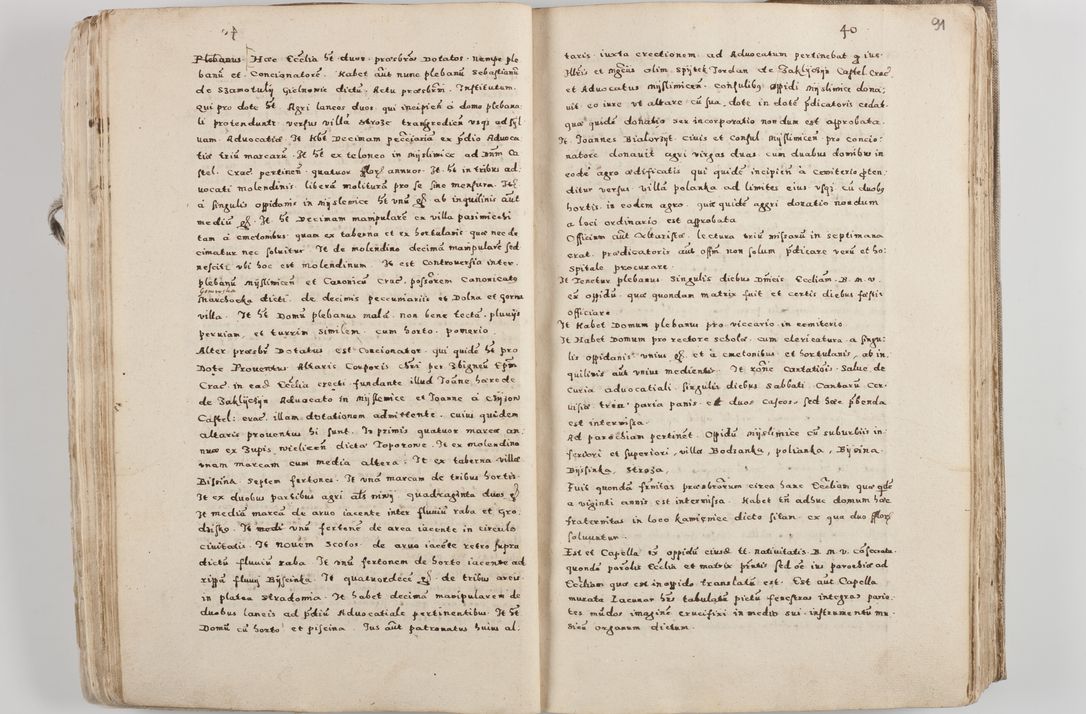 Plebanus Haec Ecclia ht duos praesbros Dotatos nempe ple
banu et Concionatore. Habet aut nunc plebanu Sebastianu
de Szamotuly dictu. Actu praesbrm. Institutum.
qui pro dote ht Agri laneos duos qui incipien a domo plebana
li protendunt versus villa Stroze transgredien usqs ad syl
uam Advocatia It Hbt Decimam ex pdio Aduoca
tia triu marcaru. It ht ex teloneo in mijslimice ad Dnm Ca
stel. Crac pertinen. quatuor annuos. It ht in tribus ad
uocati molendinis libera molitura pro se sine mensura. It
a singulis oppidanis in mijslemice ht unu ab inquilinis aut
mediu It ht Decimam manipulare ex villa
tam a cmetombus quam ex taberna et ex hortulanis quae nec de
cimatur nec soluitur It de molendino decima manipulare sed
nesciti ubi hoc est molendinum It est Controversia inter
plebanu mijslimicen et Canonicu Crac possorem Canonicato
Marchocka dicti de decimis peccumariis et Dolna et gorna
villa. It ht Domu plebanus mala non bene tecta pluvijs
perviam, et turrim similem cum horto pomerio
Alter praesbr Dotatus est Concionator qui quide ht pro
Dote Proventus Altaris Corporis chri per Zbigneu Epm
Crac in ead Ecclia erecti fundante illud Joane haerede
de Zaklijczijn Advocato in mijslemice et Joanne a
Castel: crac illam dotationem admittente cuius quidem
altaris proventus hi sunt In primis quatuor marcae an
nuae ex Zupis wieliczen dicta Toporone. It ex molendino
unam marcam cum media altera. It ex taberna villae
Bisina septem fertones. It una marcam de tribus hortis.
It ex duobus partibus agri als niwij quadraginta duos
It media marca de aruo iacente inter fluviu raba et Gro
dzisko. It unu fertone de area iacente in circulo
civitatis It novem Scotos de aruo iacete retro supra
dictu fluviu raba It unu fertonem de horto iacente ad
rippa fluvij Bijscinka It quatuordece de tribus areis
in platea Stradomia It habet decima manipularem de
duobus laneis ad pdiu Advocatiale pertinentibus It ht
Domu cu horto et piscina Jus aut patronatus huius al.
40
91
taris iuxta erectionem ad Advocatum pertinebat
Illris et Mgcus olim Spijtek Jordan de Zaklijczijn Castel Crac
et Advocatus mijslimicen consulibus oppidi mijslimice dona
uit eo iure ut altare cu sua dote in dote pdicatoris cedat
quae quide donatio seu incorporatio non dum est approbata.
It Joannes civis et Consul mijslimicen pro concio
natore donavit agri virgas duas cum duabus domibus in
eode agro aedificatis qui quide incipien a cemiterio pten
ditur versus villa polanka ad limites eius usqs cu duobus
hortis in eodem agro quae quide aggri donatio nondum
a loci ordinario est approbata
Officium aut Altaristae lectura triu missaru in septimana
erat praedicatoris aut offm non solum pdicare veru et ho
spitale procurare.
It Tenetur plebanus singulis diebus Dnicis Eccliam B. M. V.
ex oppidu quae quondam matrix fuit et certis diebus festis
officiare
It Habet Domum plebanus pro viccario in cemiterio
It Habet Domum pro rectore scholae cum clericatura a singu
lis oppidanis unius et a cmetonibus et hortulanis, ab in
quilinis aut unius medientis It rone cantatiois Salve de
Curia advocatiali singulis diebus Sabbati Cantaru cer
visiae tren paria panis et duos caseos sed haec pbenda
est intermissa
Ad parochiam pertinet Oppidu mijslimice cu suburbiis in
feriori et superiori, villa Bodzanka, polianka, Bijsina
Bijsinka, Stroza,
Fuit quonda frnitas praesbrorum circa hanc Eccliam quae
a viginti annis est intermissa Habet tn adhuc domum haec
fraternitas in loco kamieniec dicto sitam ex qua duo
soluuntur
Est et Capella ex oppidu eiusd tt nativitatis B. M. V. cosecrata
quonda parolis Ecclia et matrix pntis sed oe ius parochia ad
Eccliam quae est in oppido translata est. Est aut Capella
murata Lacunar hns tabulata pictu fenestras integras parie
tes mudos imagine crucifixi in medio sui instrumentu mu
sicu organum dictum.